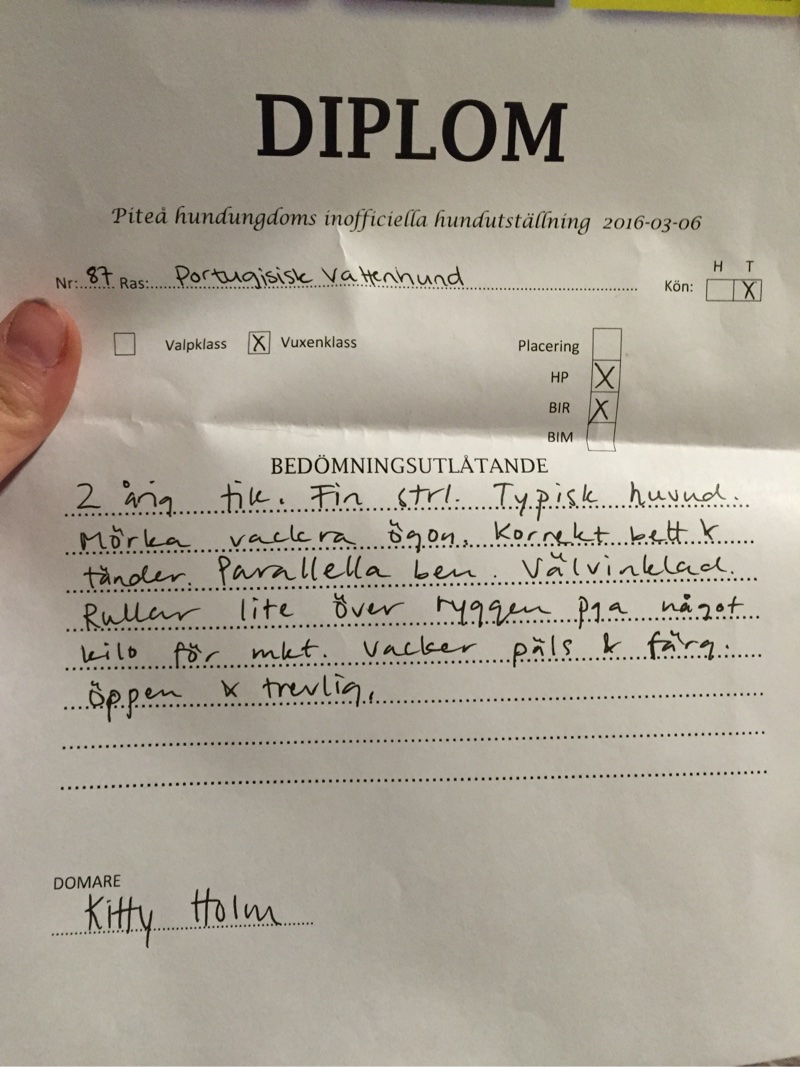 DIPLOM
Piteå hundungdoms inofficiella hundutställning 2016-03-06
H T
Nr: 87 Ras: Portugisisk Vattenhund Kön: X
Valpklass X Vuxenklass Placering
HP X
BIR X
BIM
BEDÖMNINGSUTLÅTANDE
2 årig tik. Fin strl. Typisk huvud.
Mörka vackra ögon. Korrekt bett &
tänder. Parallella ben. Välvinklad.
Rullar lite över ryggen pga något
kilo för mkt. Vacker päls & färg.
Öppen & trevlig.
DOMARE
Kitty Holm